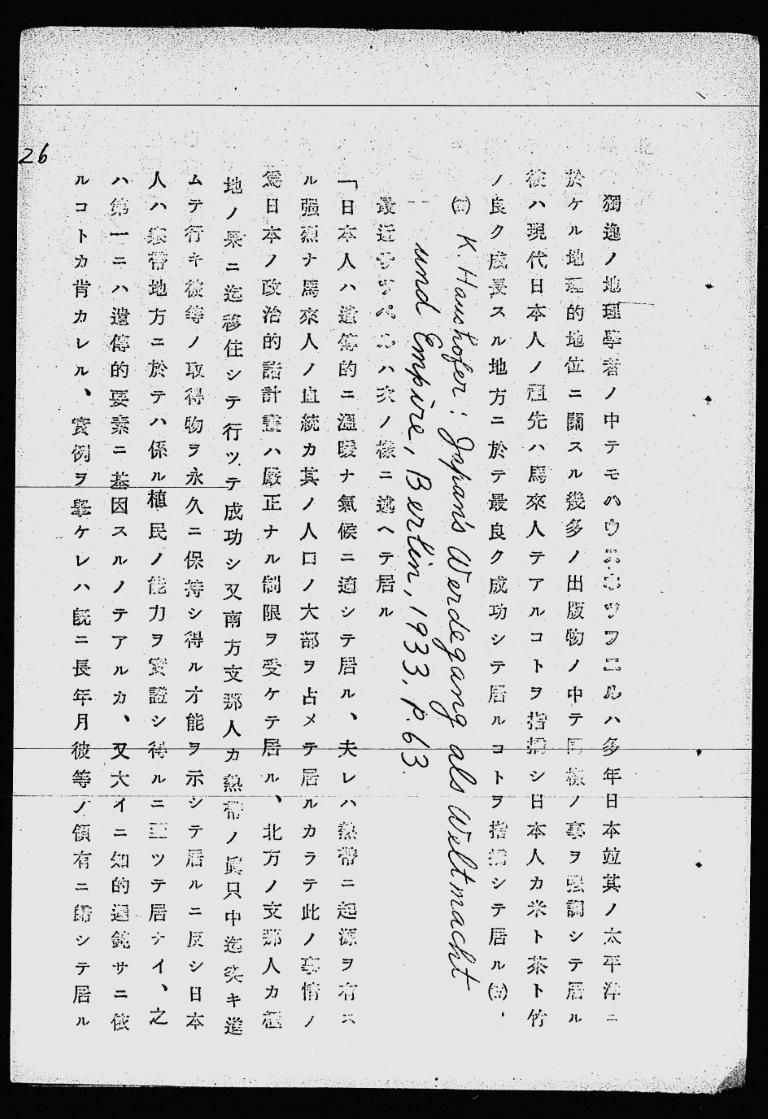 獨逸ノ地理學者ノ中テモハウスホツフエルハ多年日本竝其ノ太平洋ニ
於ケル地理的地位ニ關スル幾多ノ出版物ノ中テ同樣ノ事ヲ强調シテ居ル
彼ハ現代日本人ノ祖先ハ馬來人テアルコトヲ指摘シ日本人カ米ト茶ト竹
ノ良ク成長スル地方ニ於テ最良ク成功シテ居ルコトヲ指摘シテ居ル(註)、
(註) K. Haushofer: Japan's Werdegang als Weltmacht
und Empire, Berlin, 1933, P. 63.
最近 ハ次ノ樣ニ述ヘテ居ル
「日本人ハ遺傳的ニ溫暖ナ氣候ニ適シテ居ル、夫レハ熱帶ニ起源ヲ有ス
ル强烈ナ馬來人ノ血統カ其ノ人口ノ大部ヲ占メテ居ルカラテ此ノ事情ノ
爲日本ノ政治的諸計畫ハ嚴正ナル制限ヲ受ケテ居ル、北方ノ支那人カ極
地ノ果ニ迄移住シテ行ツテ成功シ又南方支那人カ熱帶ノ眞只中迄突キ進
ムテ行キ彼等ノ取得物ヲ永久ニ保持シ得ル才能ヲ示シテ居ルニ反シ日本
人ハ寒帶地方ニ於テハ係ル植民ノ能力ヲ實證シ得ルニ至ツテ居ナイ、之
ハ第一ニハ遺傳的要素ニ基因スルノテアルカ、又大イニ知的遲鈍サニ依
ルコトカ肯カレル、實例ヲ擧ケレハ既ニ長年月彼等ノ領有ニ歸シテ居ル
26